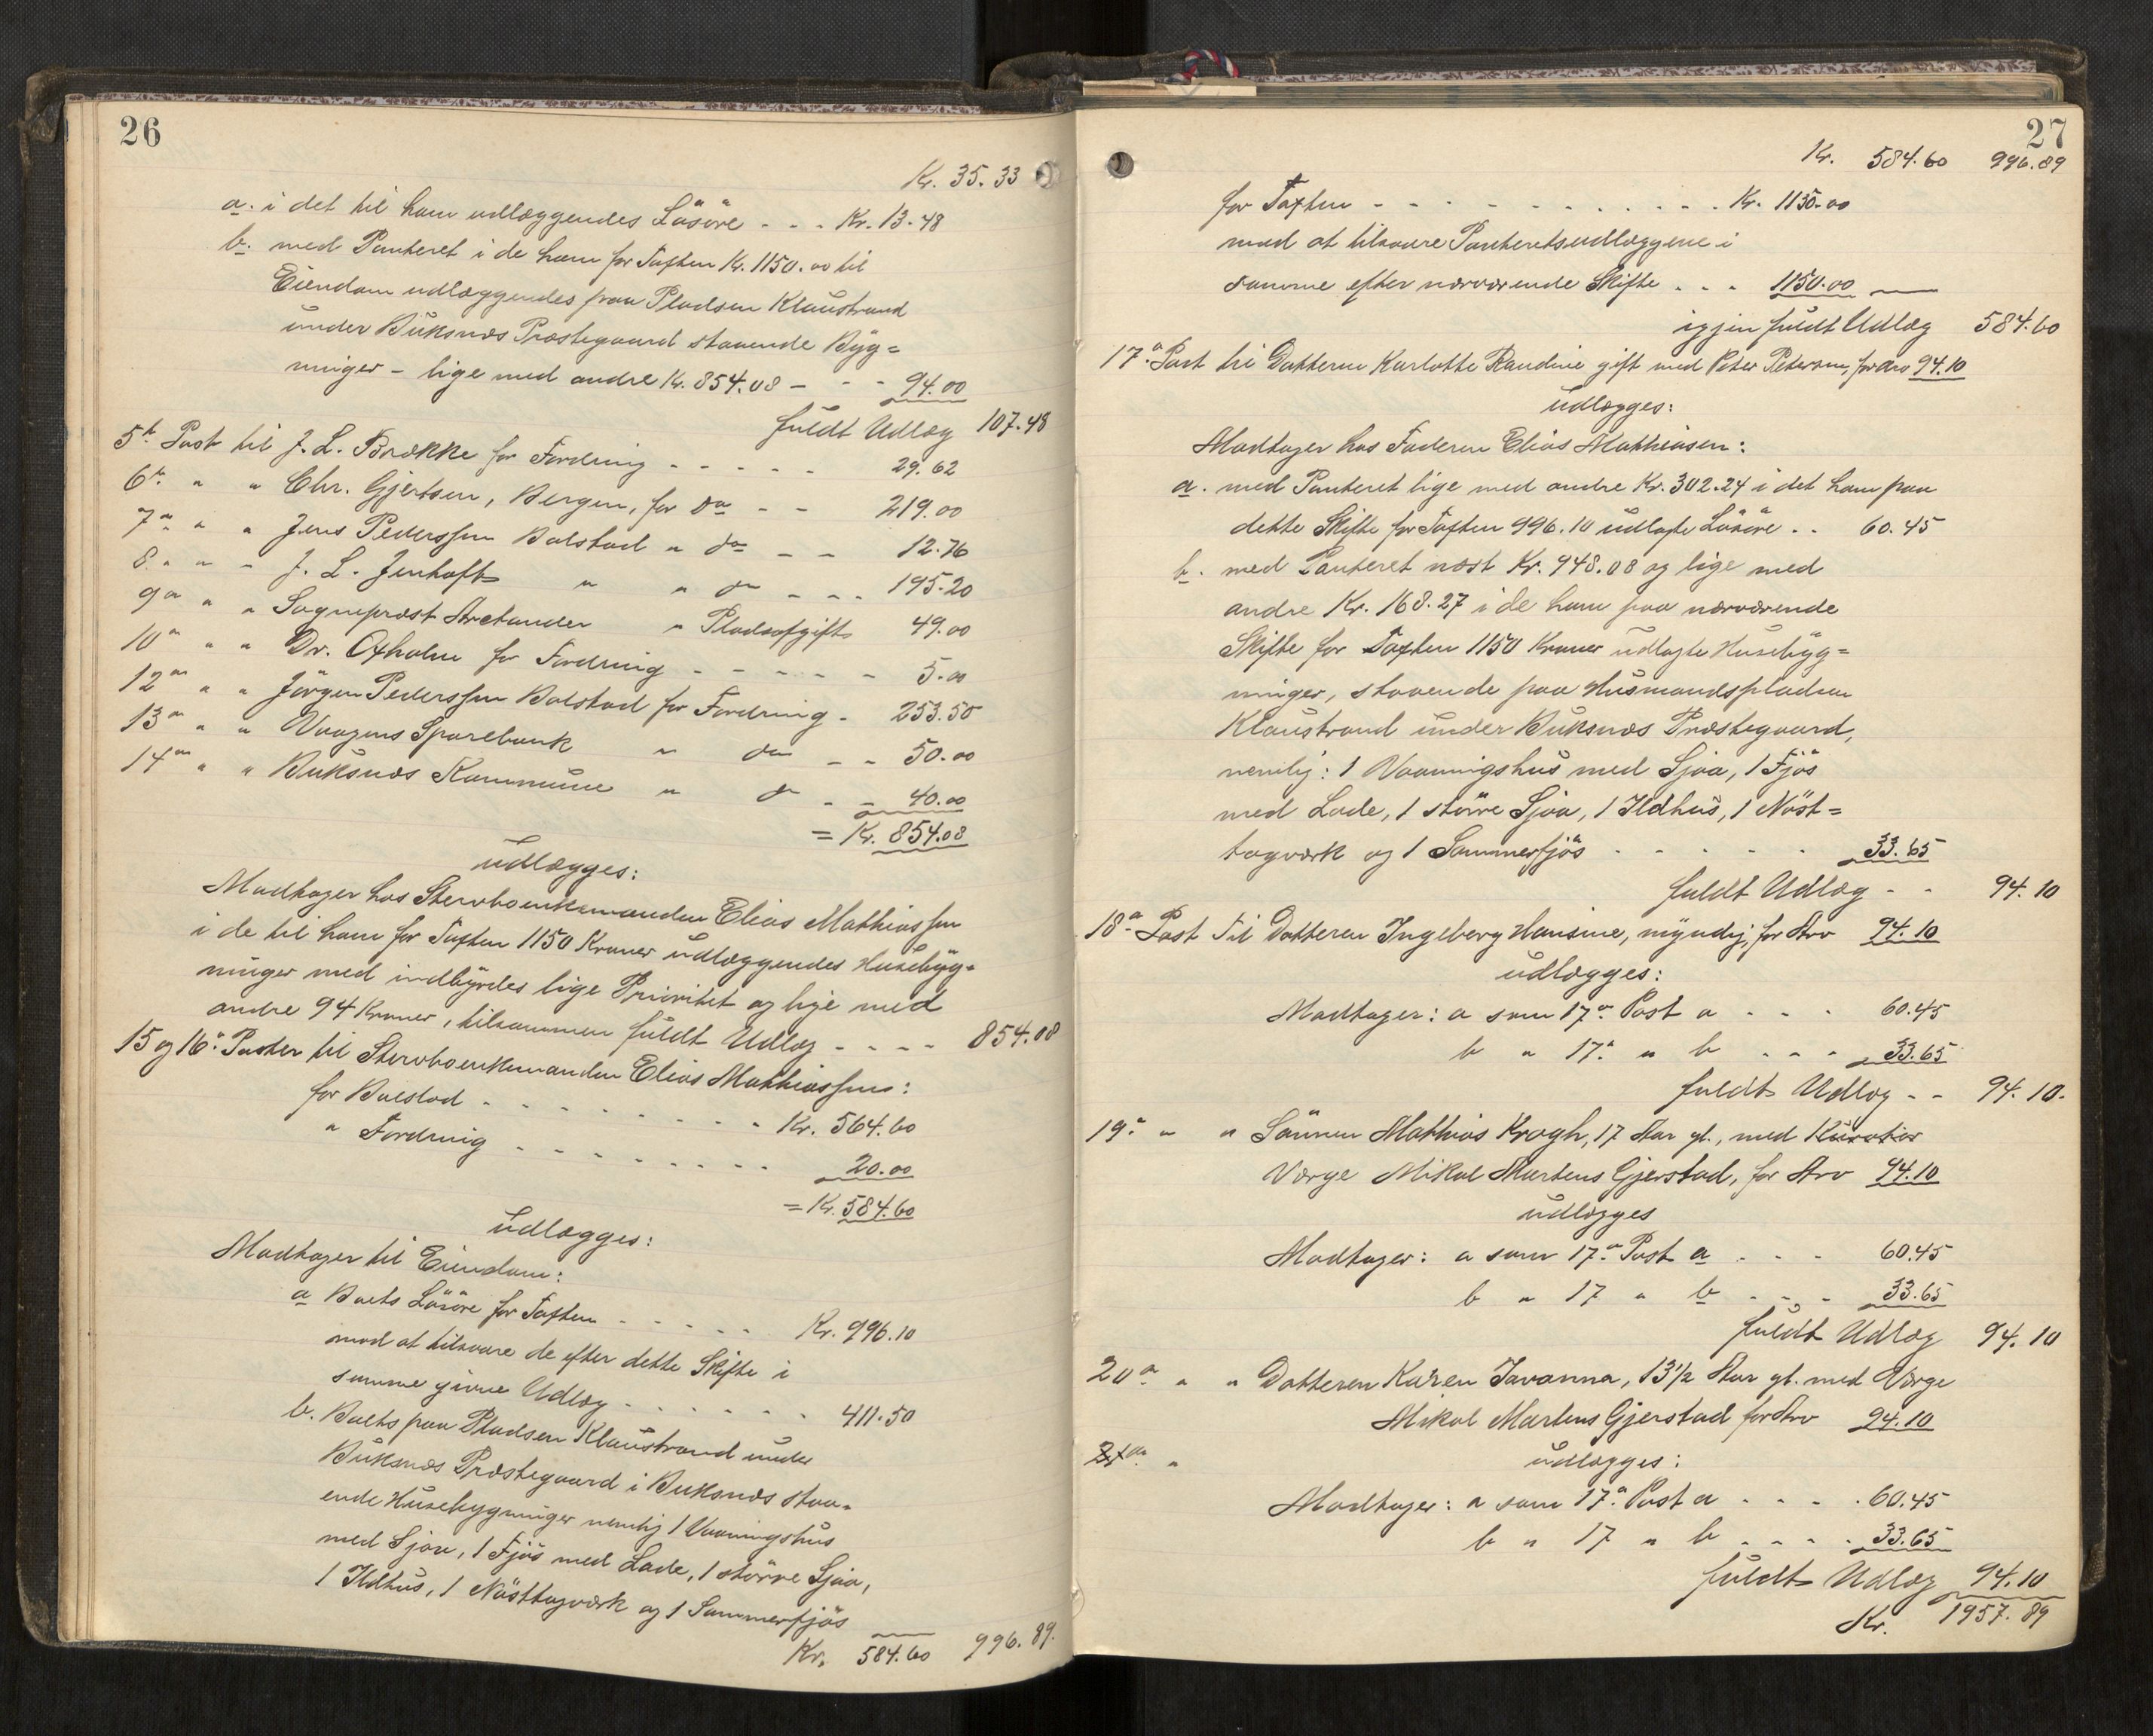 26
Kr. 35.33
a. i det til ham udlæggendes Løsøre - - - Kr. 13.48
b. med Panteret i de ham for Taxten Kr. 1150.00 til
Eiendom udlæggendes paa Pladsen Klaustrand
under Buksnæs Præstegaard staaende Byg=
ninger - lige med andre Kr. 854.08 - - - 94.00
fuldt Udlæg 107.48
5te Post til J. L. Brække for Fordring - - - - - 29.62
6te " " Chr. Gjertsen, Bergen, for do - - 219.00
7de " " Jens Pederssen Balstad " do - - 12.76
8. " " - J. L. Jenhoft " " do - - - 195.20
9de " " Sogneprest Arctander " Pladsafgift 49.00
10de " " Dr. Oxholm for Fordring - - - - - 5.00
12de " " Jörgen Pederssen Balstad for Fordring - 253.50
13de " " Vaagens Sparebank " do - - 50.00
14de " " Buksnæs Kommune " do - - 40.00
= Kr. 854.08
udlægges:
Modtager hos Stervboenkemanden Elias Mathiassen
i de til ham for Taxten 1150 Kroner udlæggendes Husebyg=
ninger med indbyrdes lige Prioritet og lige med
andre 94 Kroner, tilsammen fuldt Udlæg - - - - 854.08
15 og 16de Poster til Stervboenkemanden Elias Mathiassen:
for Boeslod - - - - - - - - - Kr. 564.60
" Fordring - - - - - - - - 20.00
= Kr. 584.60
udlægges:
Modtager til Eiendom:
a Boets Løsøre for Taxten - - - - - Kr. 996.10
mod at tilsvare de efter dette Skifte i
samme givne Udlæg - - - - - - - 411.50
b. Boets paa Pladsen Klaustrand under
Buksnæs Præstegaard i Buksnæs staa=
ende Husebygninger nemlig 1 Vaaningshus
med Sjaa, 1 Fjös med Lade, 1 större Sjaa,
1 Ildhus, 1 Nösttagværk og 1 Sommerfjös
Kr. 584.60 996.89.
27
Kr. 584.60 996.89
for Taxten - - - - - - - - - - - - Kr. 1150.00
mod at tilsvare Panteretsudlæggene i
samme efter nærværende Skifte - - - 1150.00 —
igjen fuldt Udlæg 584.60
17de Post til Datteren Karlotte Randine gift med Peter Peterson, for Arv 94.10
udlægges:
Modtager hos Faderen Elias Mathiasen:
a. med Panteret lige med andre Kr. 302.24 i det ham paa
dette Skifte for Taxten 996.10 udlagte Løsøre - - 60.45
b. med Panteret næst Kr. 948.08 og lige med
andre Kr. 168.27 i de ham paa nærværende
Skifte for Taxten 1150 Kroner udlagte Husebyg=
ninger, staaende paa Husmandspladsen
Klaustrand under Buksnæs Præstegaard,
nemlig: 1 Vaaningshus med Sjaa, 1 Fjös
med Lade, 1 större Sjaa, 1 Ildhus, 1 Nöst=
tagværk og 1 Sommerfjös - - - - - 33.65
fuldt Udlæg - - 94.10
18de Post til Datteren Ingeberg Hansine, myndig, for Arv 94.10
udlægges:
Modtager: a som 17de Post a - - - 60.45
b " 17de " b - - - 33.65
fuldt Udlæg - - 94.10.
19de " " Sönnen Mathias Krogh, 17 Aar gl., med Kurator
Værge Mikal Martens Gjerstad, for Arv 94.10
udlægges
Modtager: a som 17de Post a - - - 60.45
b " 17 " b - - - 33.65
fuldt Udlæg 94.10
20de " " Datteren Karen Javanna, 13½ Aar gl. med Værge
Mikal Martens Gjerstad for Arv 94.10
21de "
udlægges:
Modtager: a som 17de Post a - - - - 60.45
b " 17 " b - - - - 33.65
fuldt Udlæg 94.10
Kr. 1957.89